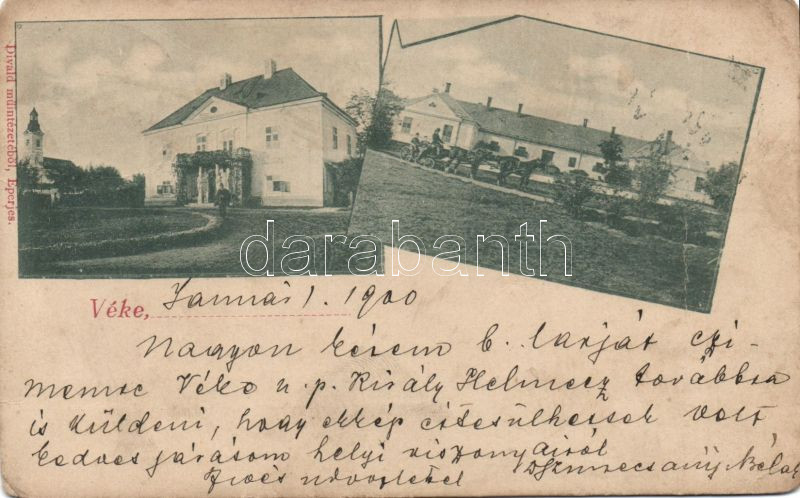 Divald műintézetéből, Eperjes.
darabanth
Véke, Január 1. 1900
Nagyon kérem b. lapját czi-
memre Véke u. p. Király Helmecz továbbra
is küldeni, hogy ekkép értesülhessek volt
kedves járásom helyi viszonyairól
üdvözlettel Béla